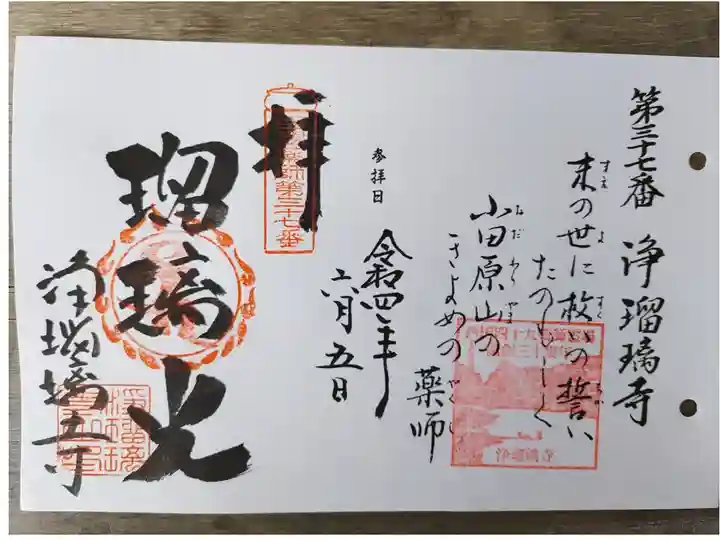 第三十七番 浄瑠璃寺
末の世に救いの誓い
すえ よ すく ちか
たのもしく
小田原山の
おだわらやま
きよめの薬師
やくし
浄瑠璃寺
参拝日
令和四年
六月五日
拝
薬師第三十七番
瑠璃光
浄瑠璃寺